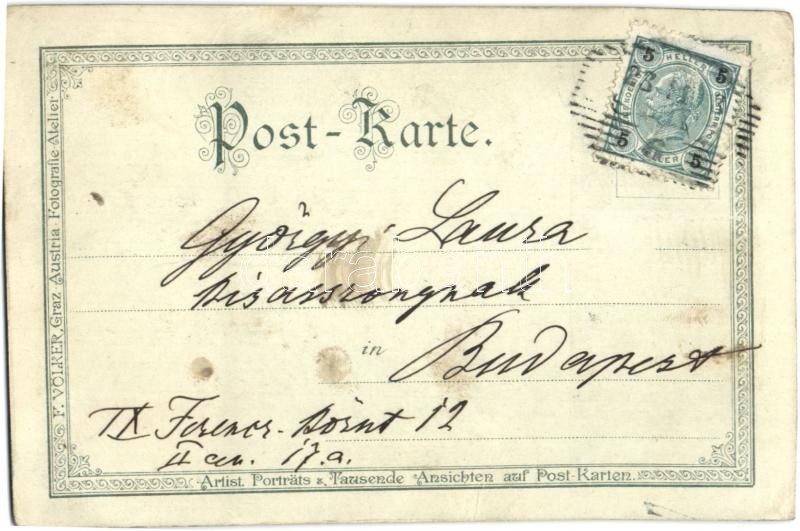 Post-Karte.
5 HELLER 5
5 HELLER 5
Györgyi Laura
kisasszonynak
in Budapest
IX Ferencz-körút 12
II em. 17. a.
F. VÖLKER, Graz, Austria. Fotografie-Atelier
Artist. Porträts & Tausende Ansichten auf Post-Karten.